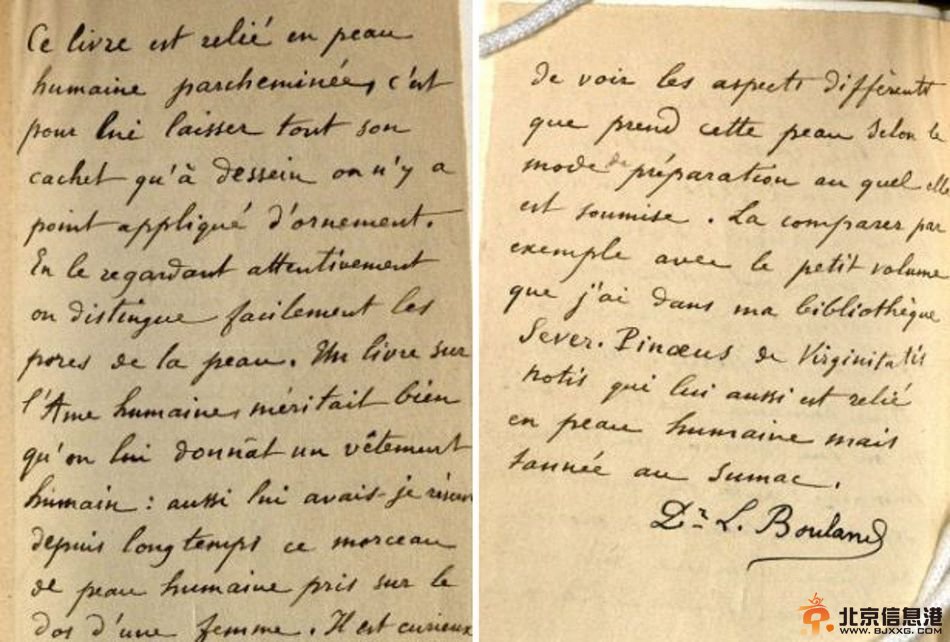 Ce livre est relié en peau
humaine parcheminée, c'est
pour lui laisser tout son
cachet qu'à dessein on n'y a
point appliqué d'ornement.
En le regardant attentivement
on distingue facilement les
pores de la peau. Un livre sur
l'Ame humaine, méritait bien
qu'on lui donnât un vêtement
humain : aussi lui avais-je réserv
depuis longtemps ce morceau
de peau humaine pris sur le
dos d'une femme. Il est curieux
de voir les aspects différents
que prend cette peau selon le
mode de préparation au quel elle
est soumise. La comparer par
exemple avec le petit volume
que j'ai dans ma bibliothèque
Sever. Pinaeus de Virginitatis
notis qui lui aussi est relié
en peau humaine mais
tannée au sumac.
Dr L. Bouland
北京信息港
WWW.BJXXG.COM